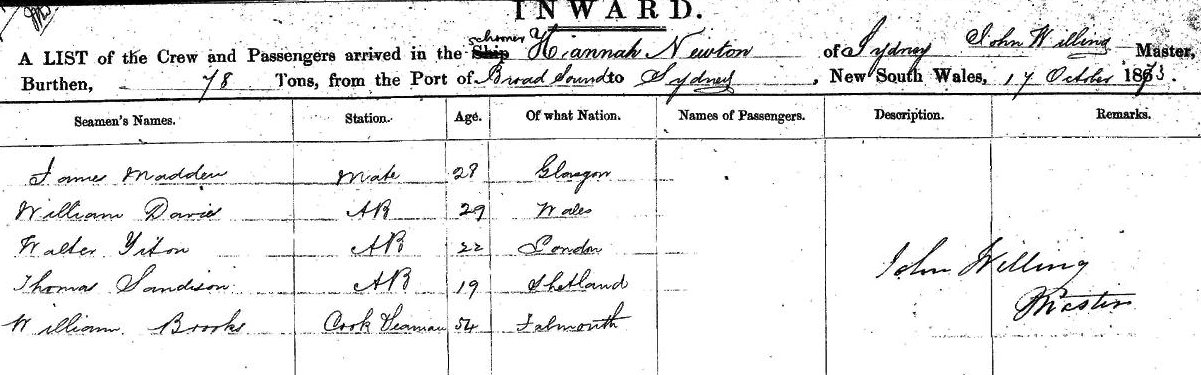 INWARD.
schooner
A LIST of the Crew and Passengers arrived in the Ship Hannah Newton of Sydney John Willing Master,
Burthen, 78 Tons, from the Port of Broad Sound to Sydney, New South Wales, 17 October 1873.
Seamen's Names. Station. Age. Of what Nation. Names of Passengers. Description. Remarks.
James Madden Mate 28 Glasgow
William Davies AB 29 Wales
Walter AB 22 London
Thomas Sandison AB 19 Shetland
William Brooks Cook Seaman 54 Falmouth
John Willing
Master